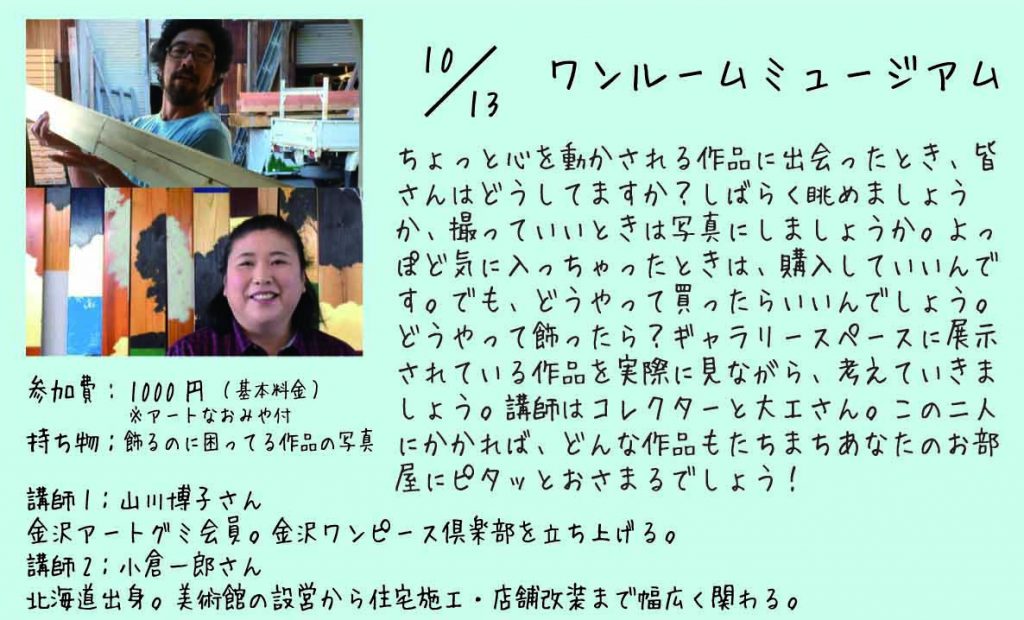 10/13 ワンルームミュージアム
ちょっと心を動かされる作品に出会ったとき、皆
さんはどうしてますか？しばらく眺めましょう
か、撮っていいときは写真にしましょうか。よっ
ぽど気に入っちゃったときは、購入していいんで
す。でも、どうやって買ったらいいんでしょう。
どうやって飾ったら？ギャラリースペースに展示
されている作品を実際に見ながら、考えていきま
しょう。講師はコレクターと大工さん。この二人
にかかれば、どんな作品もたちまちあなたのお部
屋にピタッとおさまるでしょう！
参加費：1000円（基本料金）
※アートなおみや付
持ち物；飾るのに困ってる作品の写真
講師1；山川博子さん
金沢アートグミ会員。金沢ワンピース倶楽部を立ち上げる。
講師2；小倉一郎さん
北海道出身。美術館の設営から住宅施工・店舗改装まで幅広く関わる。